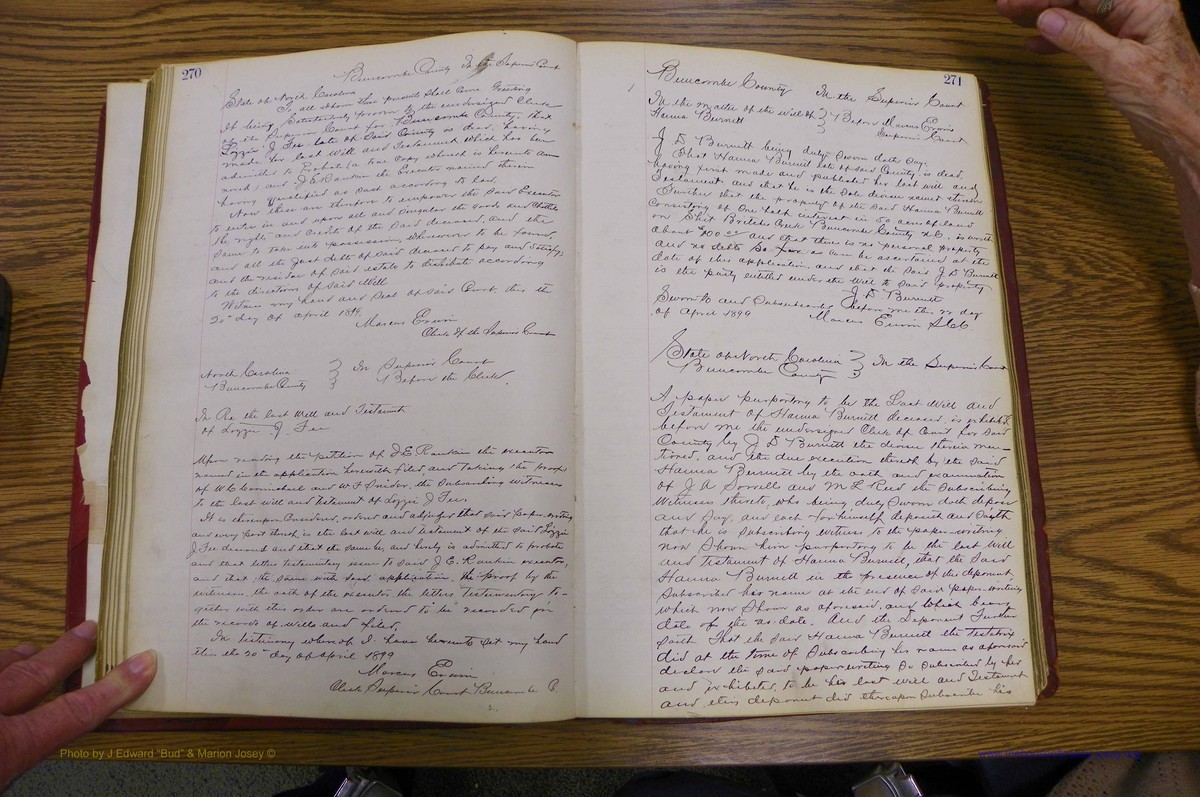 270
Buncombe County In the Superior Court
State of North Carolina
To all whom these presents shall come Greeting
It being satisfactorily proven to the undersigned Clerk
of the Superior Court for Buncombe County, that
Lizzie J Fee late of said County is dead, having
made her last will and Testament which has been
admitted to Probate (a true copy whereof is hereunto an
nexed) and J E Rankin the Executor named therein
having qualified as such according to law.
Now these are therefore to empower the said Executor
to enter in and upon all and singular the goods and chattels
the rights and credits of the said deceased, and the
same to take into possession, wheresoever to be found,
and all the just debts of said deceased to pay and satisfy,
and the residue of said estate to distribute according
to the directions of said Will
Witness my hand and seal of said Court, this the
20th day of April 1899.
Marcus Erwin
Clerk of the Superior Court
North Carolina } In Superior Court
Buncombe County } Before the Clerk.
In Re the last Will and Testament
of Lizzie J Fee
Upon reading the petition of J E Rankin the executor
named in the application herewith filed and taking the proofs
of W C Carmichael and W F Snider, the subscribing witnesses
to the last will and testament of Lizzie J Fee.
It is thereupon considered, ordered and adjudged that said paper writing
and every part thereof is the last will and testament of the said Lizzie
J Fee deceased and that the same be, and hereby is admitted to probate
and that letters testamentary issue to said J. E. Rankin executor,
and that the same with said application, the proof by the
witnesses, the oath of the executor, the letters testamentary to-
gether with this order are ordered to be recorded in
the records of wills and filed,
In testimony whereof I have hereunto set my hand
this the 20th day of April 1899
Marcus Erwin
Clerk Superior Court Buncombe C
271
Buncombe County In the Superior Court
In the matter of the will of } Before Marcus Erwin
Hanna Burnett } Superior Court
J. D. Burnett being duly sworn doth say:
That Hanna Burnett late of said County, is dead,
having first made and published her last will and
Testament, and that he is the sole devisee named therein
Further that the property of the said Hanna Burnett
Consisting of one half interest in 50 acres of land
on Buncombe County N.C. is worth
about and that there is no personal property
and no debts so far as can be ascertained at the
date of this application, and that the said J. D. Burnett
is the party entitled under the will to said property
J. D. Burnett
Sworn to and subscribed before me this 22 day
of April 1899 Marcus Erwin S C C
State of North Carolina } In the Superior Court
Buncombe County }
A paper purporting to be the Last Will and
Testament of Hanna Burnett deceased, is exhibited
before me the undersigned Clerk of Court for said
County by J. D Burnett the devisee therein men
tioned, and the due execution thereof by the said
Hanna Burnett by the oath and examination
of J A Sorrells and M L Reed the subscribing
witnesses thereto, who being duly sworn doth depose
and say, and each for himself deposeth and sayeth
that he is subscribing witness to the paper writing
now shown him purporting to be the last will
and testament of Hanna Burnett, that the said
Hanna Burnett in the presence of the deponent,
subscribed his name at the end of said paper writing
which now shown as aforesaid, and which bears
date of the no date. And the deponent further
saith That the said Hanna Burnett the testatrix
did at the time of subscribing his name as aforesaid
declare the said paper writing so subscribed by her
and exhibited, to be his last will and Testament
and this deponent did thereupon subscribe his
Photo by J Edward "Bud" & Marion Josey ©